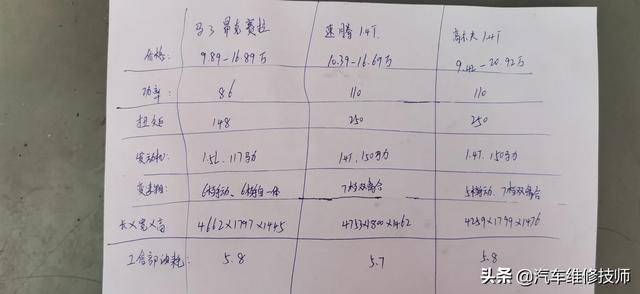 马3昂克赛拉 速腾1.4T 高尔夫1.4T
价格: 9.89-16.89万 10.39-16.69万 9.42-20.92万
功率: 86 110 110
扭矩 148 250 250
发动机: 1.5L、117马力 1.4T、150马力 1.4T、150马力
变速箱 6档手动、6档自一体 7档双离合 5档手动、7档双离合
长×宽×高 4662×1797×1445 4753×1800×1462 4259×1799×1476
工信部油耗: 5.8 5.7 5.8
头条 @汽车维修技师